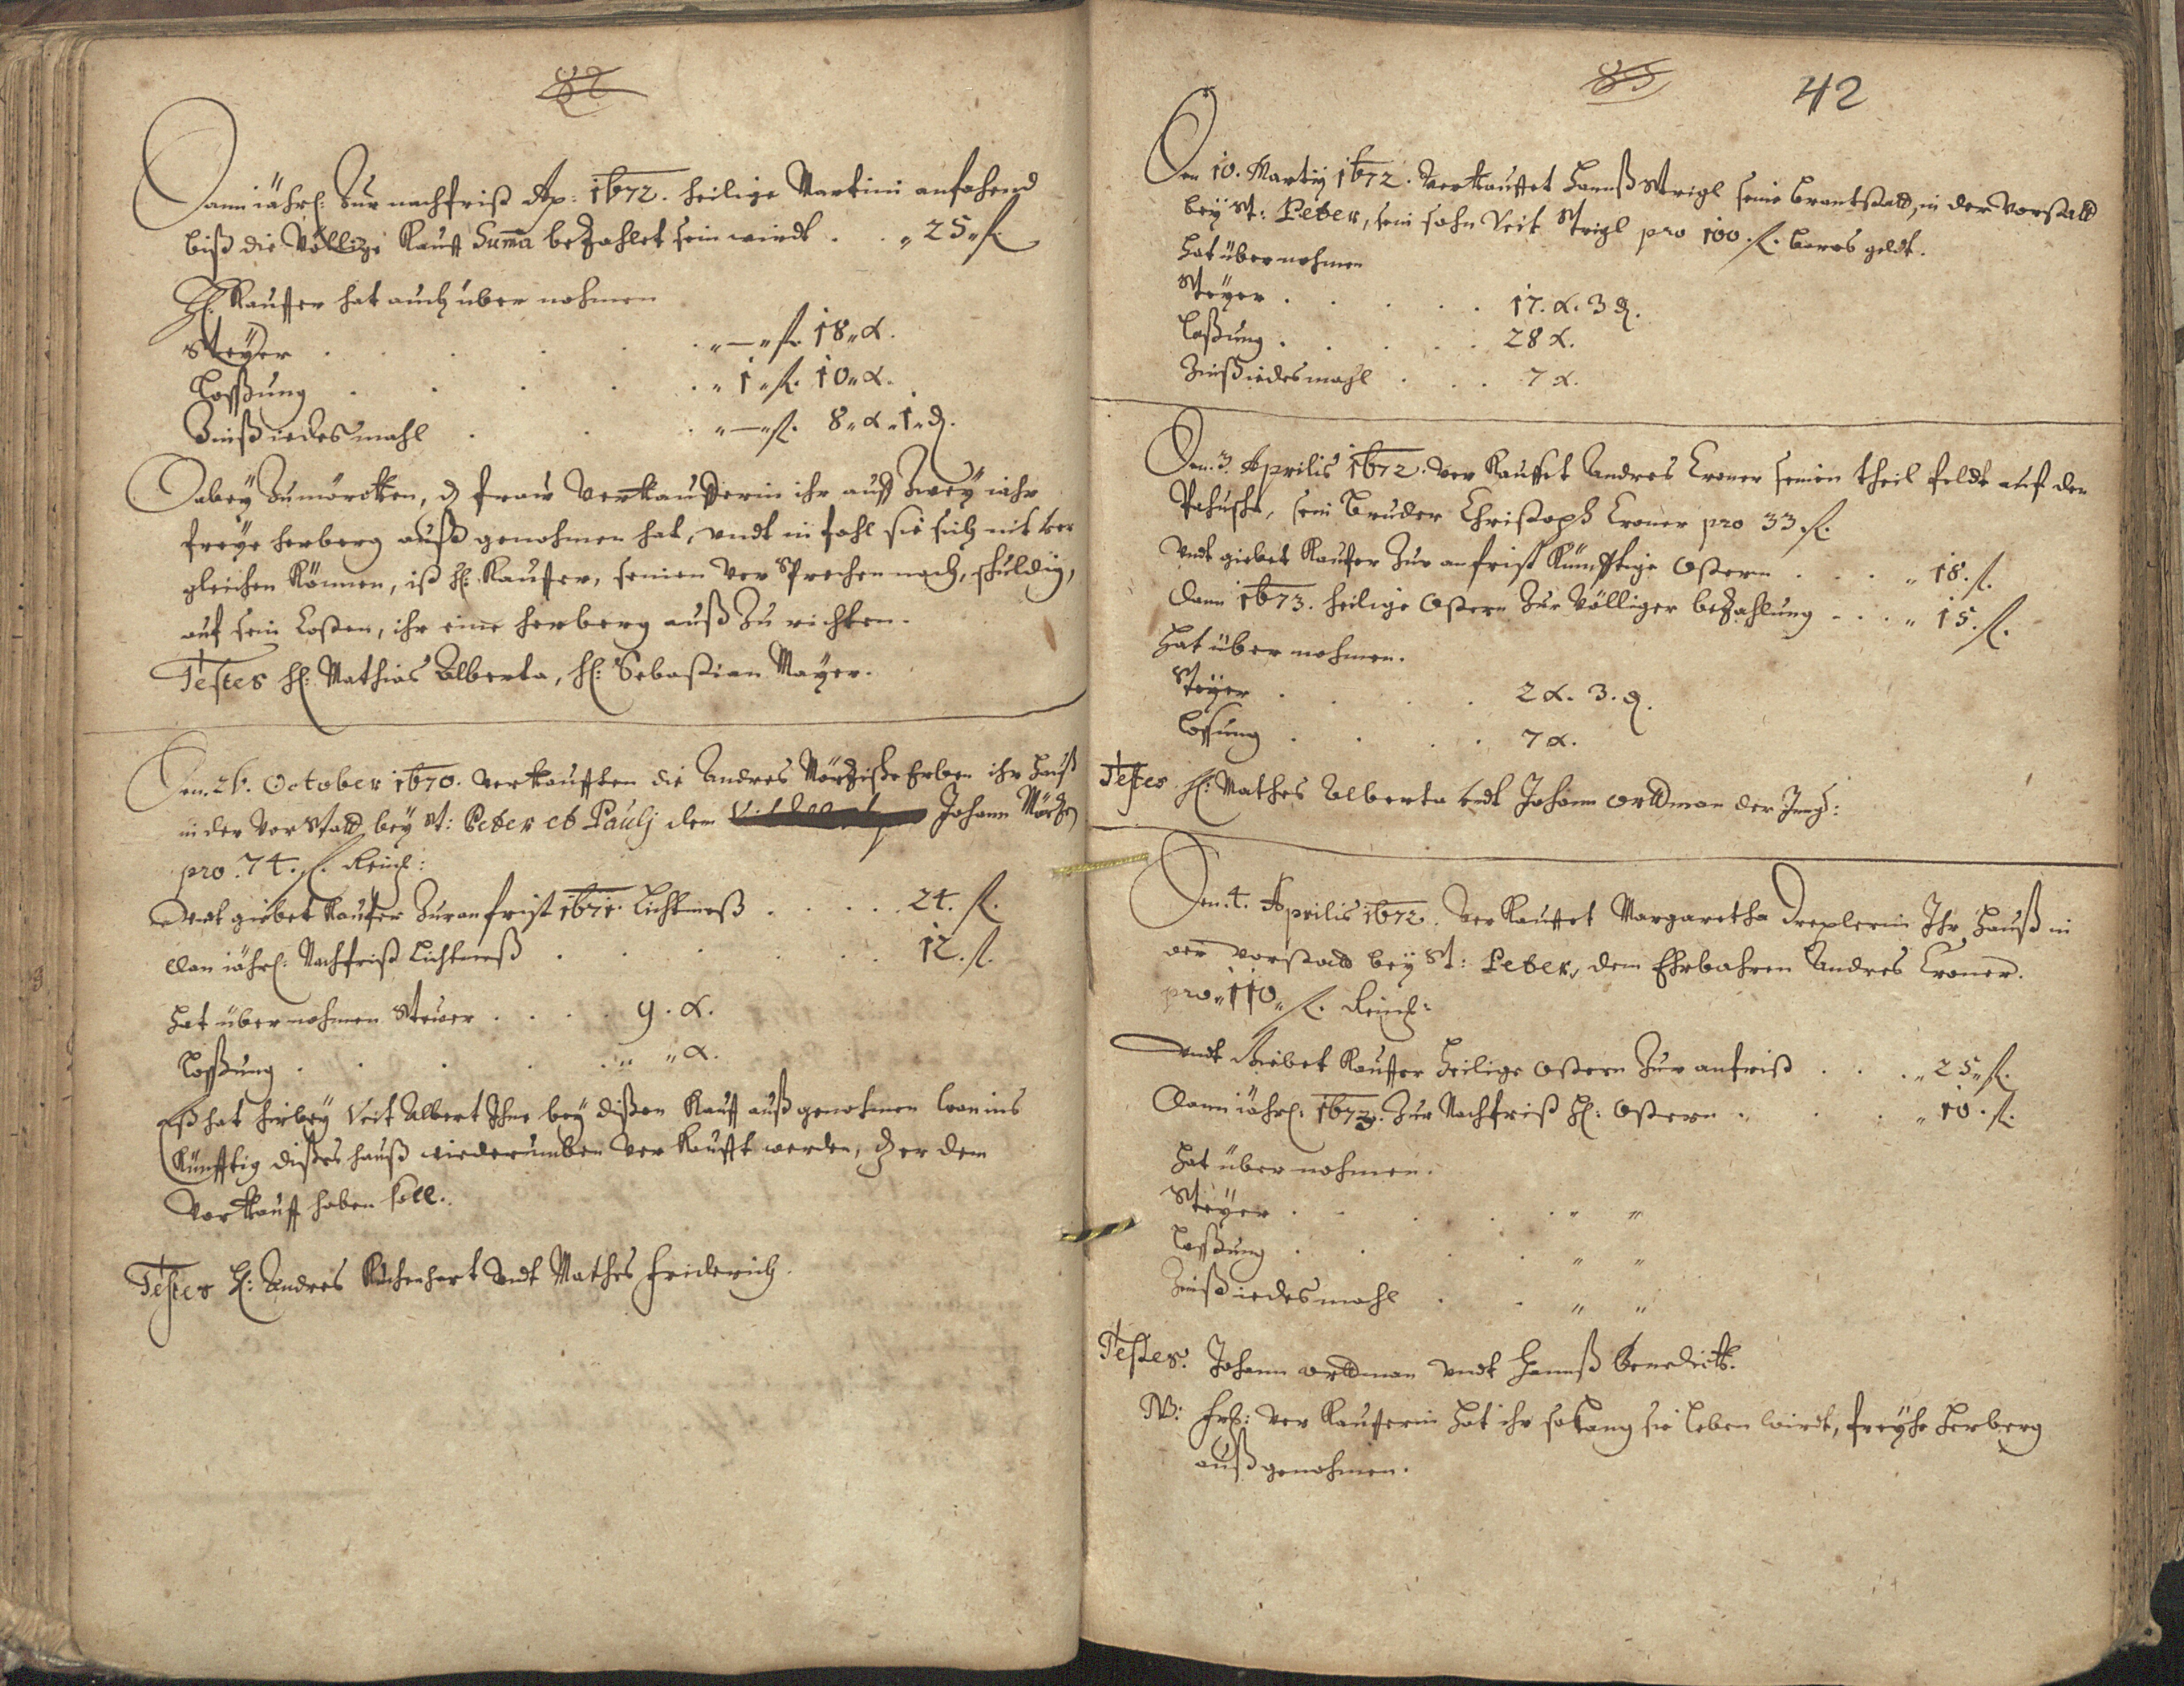 82
Dann iährl: Zur nachfrist Ao: 1672. heilige Martini anfahend
biß die Völlige Kauff Suma bezahlet sein wirdt . . „ 25 „ fl.
H: Kauffer hat auch über nohmen
Steyer . . . . . „ — „ fl. 18 „ x.
Loßung . . . . . „ 1 „ fl. 10 „ x.
Zinß iedes mahl . . . „ — „ fl. 8 „ x „ 1 „ d.
Dabey Zumörckhen, d frau Verkaufferin ihr auff Zwey iahr
freye herberg auß genohmen hat, undt in fahl sie sich nit ver
gleichen Können, ist h: Kauffer, seinen Ver Sprechen nach, schuldig,
auf sein Costen, ihr eine herberg auß Zu richten.
Testes h: Mathias Alberta, h: Sebastian Mayer.
Den. 26. October 1670. verkaufften die Andres Erben ihr Hauß
in der Vor Statt, bey St: Peter et Paulj dem Johann
pro. 74. fl. Reinl:
Undt giebet Kaufer Zur anfrist 1671. Lichtmeß . . . . 24. fl.
dan iährl: Nachfrist Lichtmeß . . . . . 12. fl.
hat über nohmen Steuer . . . . 9. x.
Loßung . . . . . „ „ x.
Eß hat hirbey Veit Albert Ihme bey dißen Kauff auß genohmen wan ins
Künfftig dißes hauß wiederumben Ver Kaufft werden, d er dem
Vorkauff haben soll.
Testes H: Andres undt Mathes Friderich.
83
42
Den 10. Martij 1672. Verkauffet Hannß Strigl seine brantstatt, in der Vorstatt
bey St: Peter, sein sohn Veit Strigl pro 100. fl. bares geldt.
Hat über nohmen
Steyer . . . . . 17. x. 3 d.
Loßung . . . . . 28 x.
Zinß iedes mahl . . . 7 x.
Den. 3. Aprilis 1672. Ver Kauffet Andres Croner seinen theil feldt auf der
sein Bruder Christoph Croner pro 33. fl.
Undt giebet Kaufer Zur anfrist Künfftige Ostern . . . . „ 18. fl.
Dann 1673. heilige Ostern Zur Völliger bezahlung . . . „ 15. fl.
Hat über nohmen.
Steyer . . . . 2 x. 3. d.
Loßung . . . . 7 x.
Testes H: Mathes Alberta undt Johann Orttman der Jung:
Den. 4. Aprilis 1672. Ver Kauffet Margaretha Drexlerin Ihr Hauß in
der Vorstatt bey St: Peter, dem Ehrbahren Andres Croner.
pro „ 110 „ fl. Reinl:
Undt Giebet Kauffer Heilige Ostern Zur anfrist . . . „ 25 „ fl.
Dann iährl: 1673. Zur Nachfrist H: Ostern . . . . „ 10. fl.
Hat über nohmen.
Steyer . . . . . „ „
Loßung . . . . . „ „
Zinß iedes mahl . . . „ „
Testes: Johann Orttman undt Hannß Benedickt.
NB: Ver Kaufferin hat ihr solang sie leben wirdt, freyhe Herberg
auß genohmen.